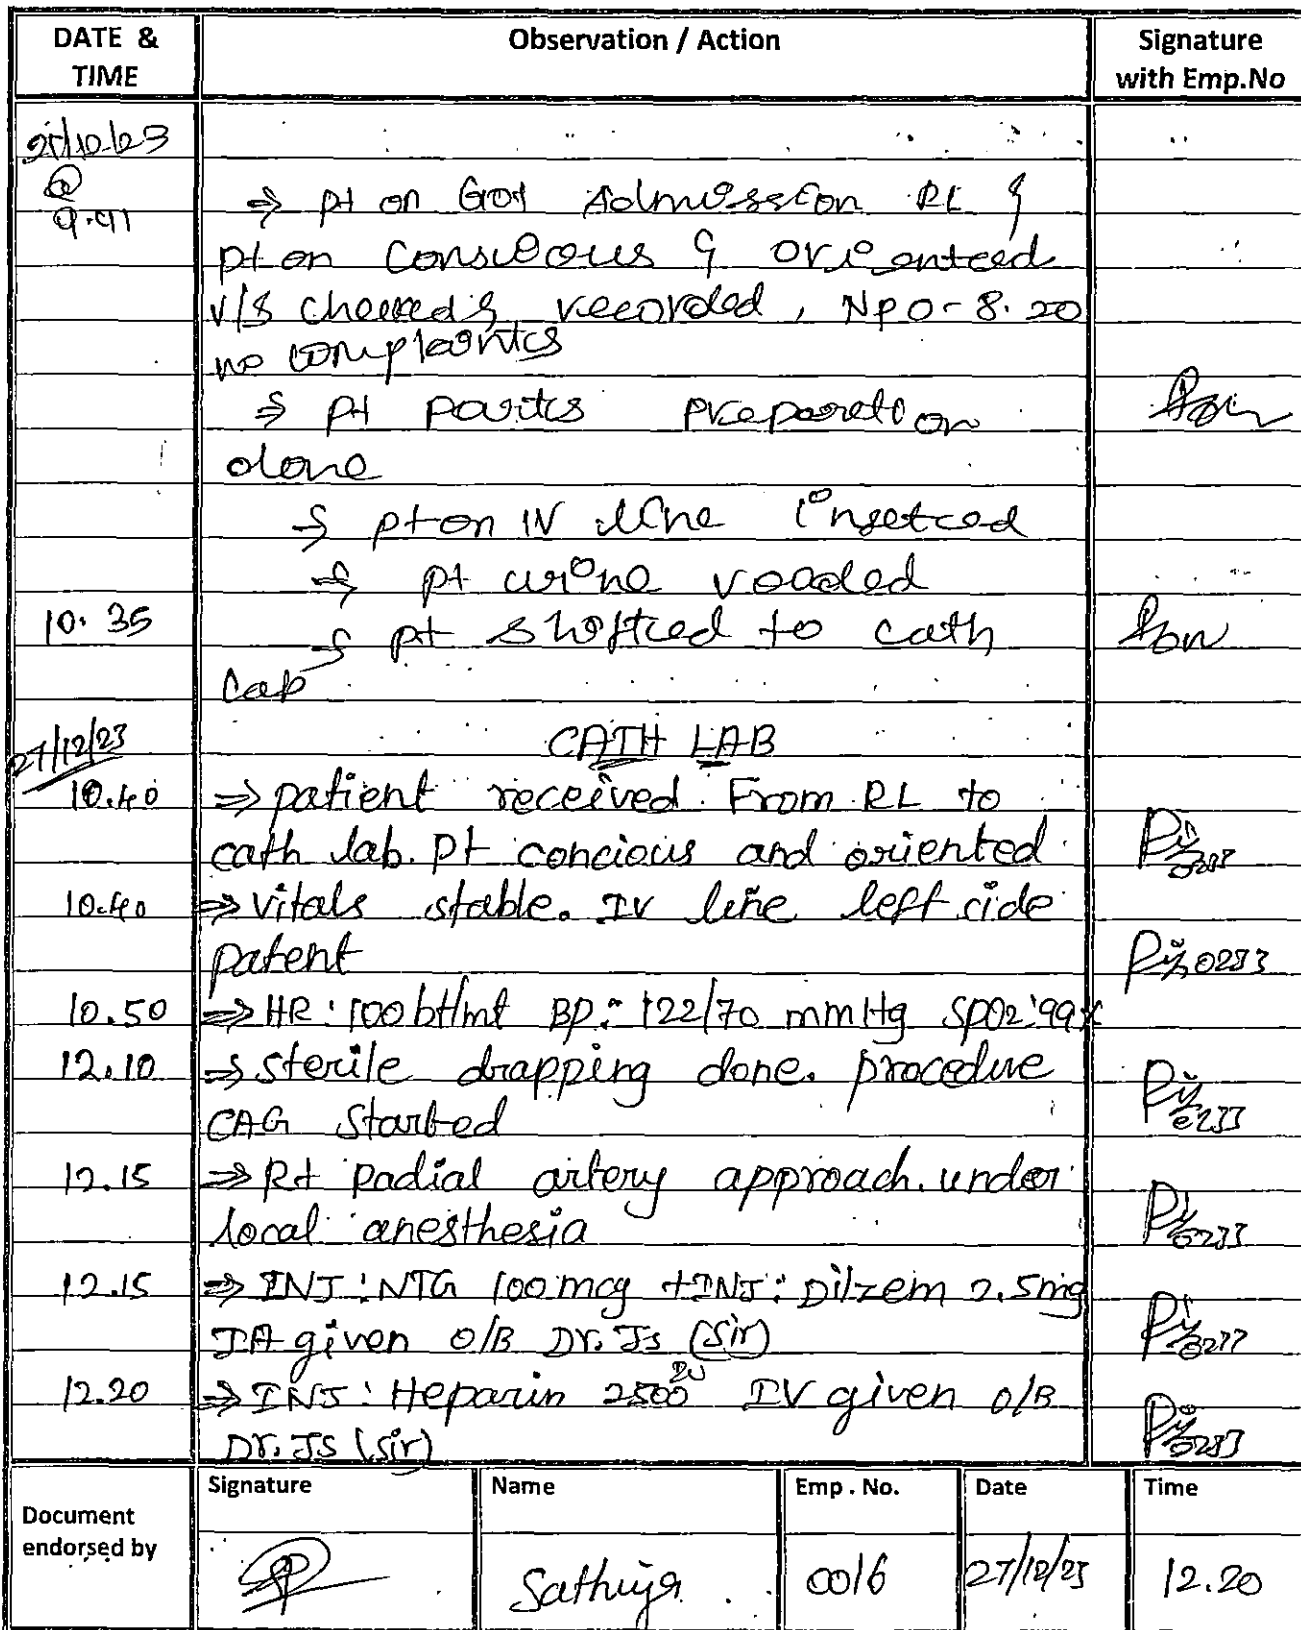 DATE & TIME
Observation / Action
Signature with Emp.No
@
⇒ pt on Got Admission RL &
pt on Conscious & orienteed
v/s checked & recorded, NPO - 8.20
no complaints
⇒ pt parts preparation
done
⇒ pt on IV line insetced
⇒ pt urine voaded
10.35 ⇒ pt shiftced to cath
Lap
27/12/23 CATH LAB
10.40 ⇒ patient received From RL to
cath lab. pt concious and oriented
10.40 ⇒ vitals stable. IV line left side
patent 0233
10.50 ⇒ HR: 100 bt/mt BP: 122/70 mmHg SPO2: 99%
12.10 ⇒ sterile drapping done. procedure
CAG Started 0233
12.15 ⇒ Rt Radial artery approach. under
local anesthesia 0233
12.15 ⇒ INJ: NTG 100 mcg + INJ: Dilzem 2.5mg
IA given O/B Dr. Js (Sir)
12.20 ⇒ INJ: Heparin 2500 IU IV given O/B
Dr. JS (sir) 0233
Document endorsed by
Signature Name Emp. No. Date Time
Sathiya 0016 27/12/23 12.20